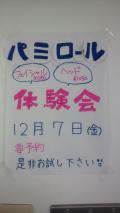 パミロール
フェイシャル ヘッド
体験会
12月7日(金)
要予約
是非お試し下さい